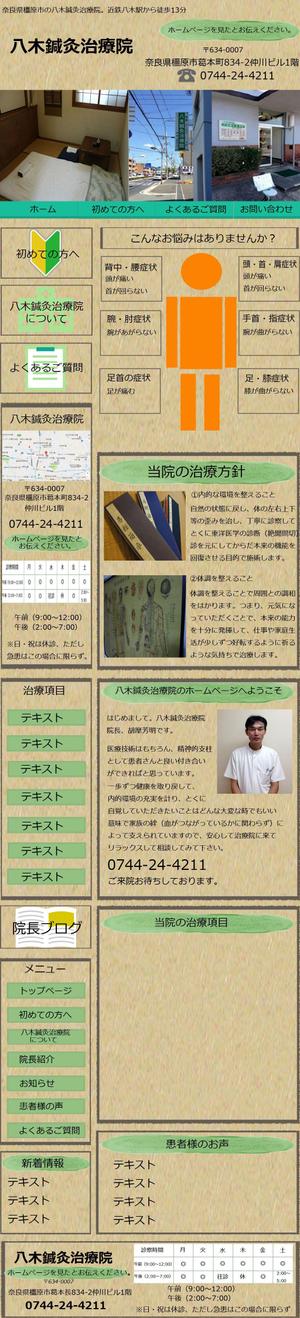 奈良県橿原市の八木鍼灸治療院。近鉄八木駅から徒歩13分
ホームページを見たとお伝えください。
八木鍼灸治療院
〒634-0007
奈良県橿原市葛本町834-2仲川ビル1階
0744-24-4211
ホーム
初めての方へ
よくあるご質問
お問い合わせ
初めての方へ
八木鍼灸治療院
について
よくあるご質問
こんなお悩みはありませんか？
背中・腰症状
頭が痛い
首が回らない
頭・首・肩症状
頭が痛い
首が回らない
腕・肘症状
腕があがらない
手首・指症状
腕が曲がらない
足首の症状
足が痛む
足・膝症状
膝が曲がらない
八木鍼灸治療院
〒634-0007
奈良県橿原市葛本町834-2
仲川ビル1階
0744-24-4211
ホームページを見たと
お伝えください。
診療時間 月 火 水 木 金 土
午前 (9:00~12:00)
午後 (2:00~7:00)
※日・祝は休診、ただし
急患はこの場合に限らず。
当院の治療方針
①内的な環境を整えること
自然の状態に戻し、体の左右上下
等の歪みを治し、丁寧に診察して
とくに東洋医学の診断（絶関関切)
診を元にしてからだ本来の機能を
回復させる目的で施術します。
②体調を整えること
体調を整えることで周囲との調和
をはかります。つまり、元気にな
っていただくことで、本来の能力
を十分に発揮して、仕事や家庭生
活が少しずつ好転するように祈る
ような気持ちで治療します。
治療項目
テキスト
テキスト
テキスト
テキスト
テキスト
テキスト
テキスト
八木鍼灸治療院のホームページへようこそ
はじめまして。八木鍼灸治療院
院長、胡摩芳明です。
医療技術はもちろん、精神的支柱
として患者さんと良い付き合い
ができればと思っています。
一歩ずつ健康を取り戻して、
内的環境の充実を計り、とくに
自覚していただきたいことはどんな大変な時でもいい
意味で家族の絆（血がつながっているかに関わらず）に
よって支えられていますので、安心して治療院に来て
リラックスして相談してみて下さい。
0744-24-4211
ご来院お待ちしております。
院長ブログ
当院の治療項目
メニュー
トップページ
初めての方へ
八木鍼灸治療院
について
院長紹介
お知らせ
患者様の声
よくあるご質問
新着情報
テキスト
テキスト
テキスト
患者様のお声
テキスト
テキスト
テキスト
テキスト
八木鍼灸治療院
ホームページを見たとお伝えください。
〒634-0007
奈良県橿原市葛本長834-2仲川ビル1階
0744-24-4211
診療時間 月 火 水 木 金 土
午前 (9:00~12:00) ○ ○ ○ ○ ○ ○
午後 (2:00~7:00) ○ ○ 往診 休 ○ 2:00~5:00
午前 (9:00~12:00)
午後 (2:00~7:00)
※日・祝は休診、ただし急患はこの場合に限らず